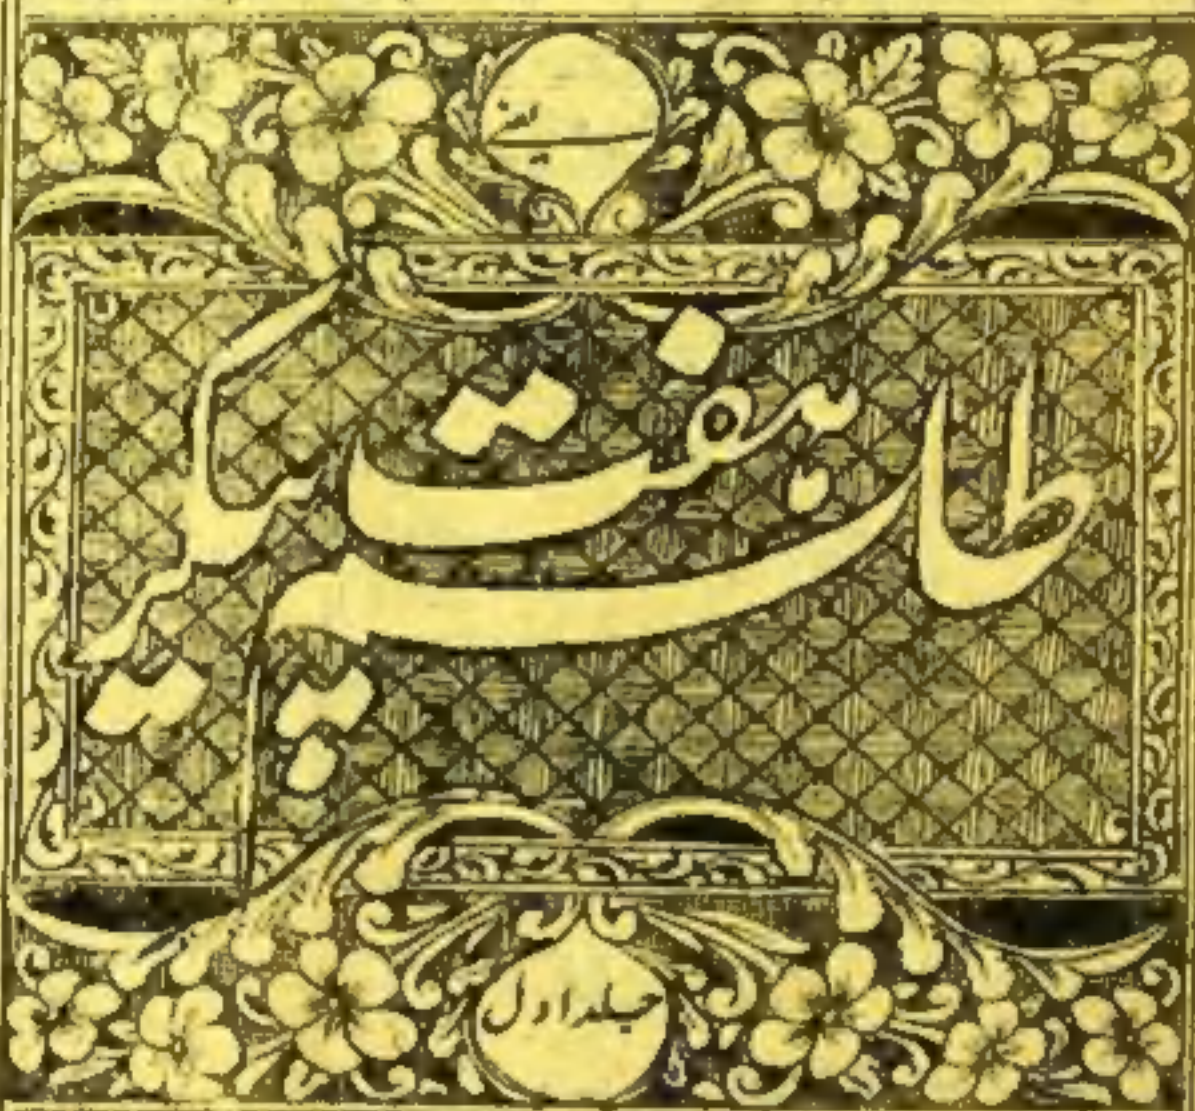 طلسم ہفت پیکر
جلد اول